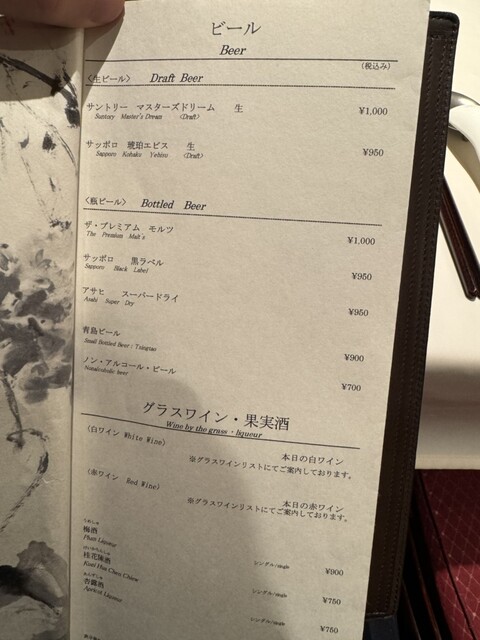 ビール
Beer
(税込み)
〈生ビール〉 Draft Beer
サントリー マスターズドリーム 生 ¥1,000
Suntory Master's Dream (Draft)
サッポロ 琥珀エビス 生 ¥950
Sapporo Kohaku Yebisu (Draft)
〈瓶ビール〉 Bottled Beer
ザ・プレミアム モルツ ¥1,000
The Premium Malt's
サッポロ 黒ラベル ¥950
Sapporo Black Label
アサヒ スーパードライ ¥950
Asahi Super Dry
青島ビール ¥900
Small Bottled Beer : Tsingtao
ノン・アルコール・ビール ¥700
Nonalcoholic beer
グラスワイン・果実酒
Wine by the grass・liqueur
〈白ワイン White Wine〉 本日の白ワイン
※グラスワインリストにてご案内しております。
〈赤ワイン Red Wine〉 本日の赤ワイン
※グラスワインリストにてご案内しております。
うめしゅ
梅酒 シングル/single ¥900
Plum Liqueur
桂花陳酒 シングル/single ¥750
Kuei Hua Chen Chiew
杏露酒 シングル/single ¥750
Apricot Liqueur